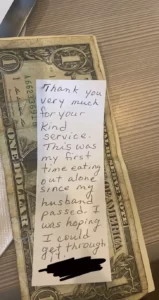 Thank you
very much
for your
kind
service.
This was
my first
time eating
out alone
since my
husband
passed. I
was hoping
I could
get through